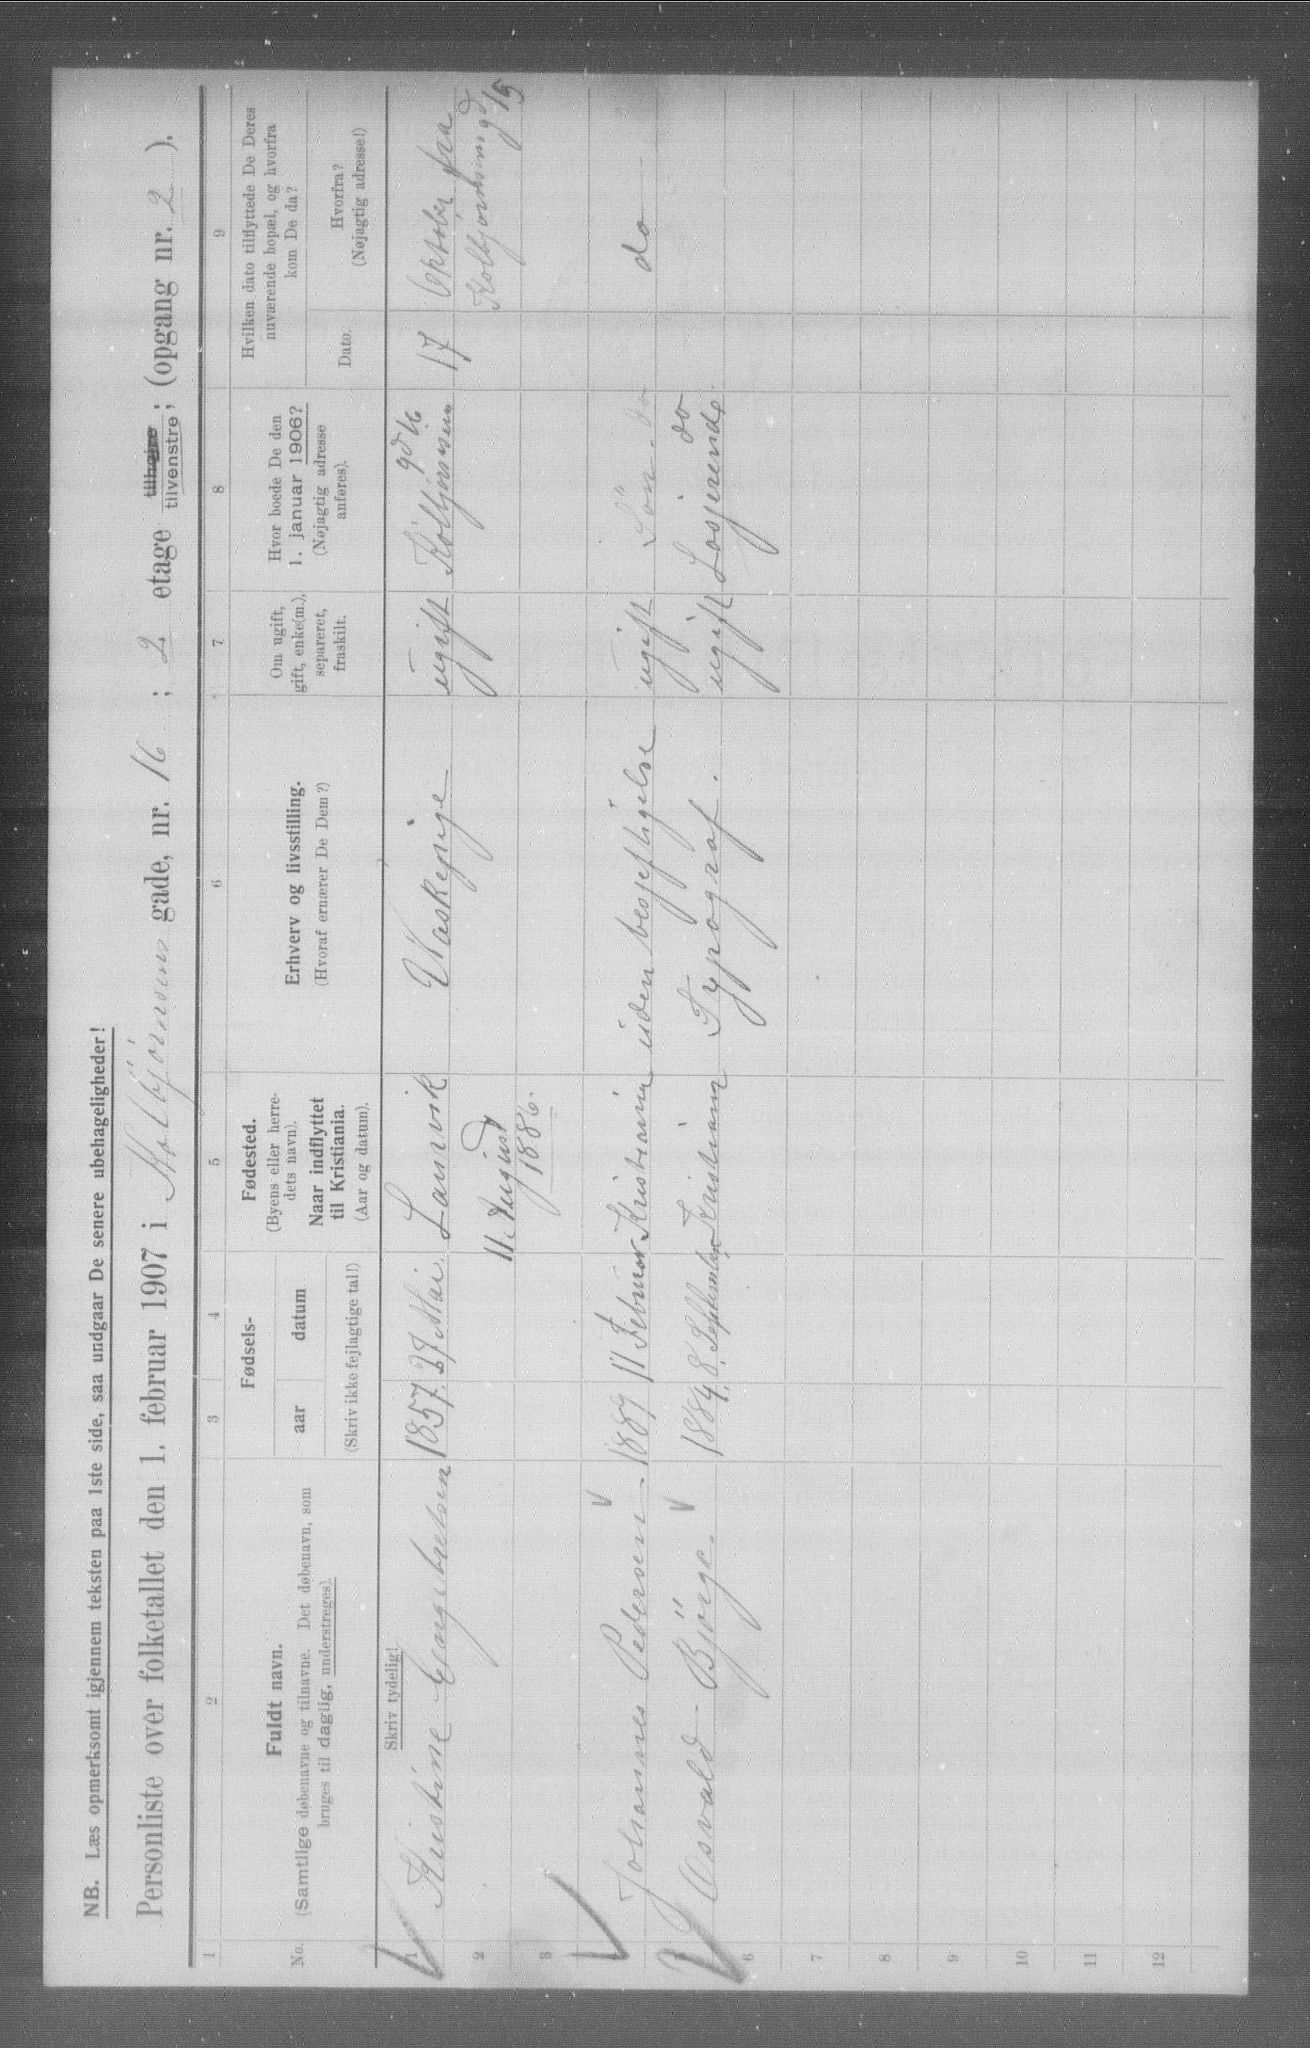 NB. Læs opmerksomt igjennem teksten paa 1ste side, saa undgaar De senere ubehageligheder!
Personliste over folketallet den 1. februar 1907 i Kolbjörnsens gade, nr. 16 ; 2 etage tilhøire tilvenstre ; (opgang nr. 2 ).
1 2 3 4 5 6 7 8 9
No.
Fuldt navn.
(Samtlige døbenavne og tilnavne. Det døbenavn, som
bruges til daglig, understreges).
Fødsels-
aar datum
(Skriv ikke fejlagtige tal!)
Fødested.
(Byens eller herre-
dets navn).
Naar indflyttet
til Kristiania.
(Aar og datum).
Erhverv og livsstilling.
(Hvoraf ernærer De Dem?)
Om ugift,
gift, enke(m.),
separeret,
fraskilt.
Hvor boede De den
1. januar 1906?
(Nøjagtig adresse
anføres).
Hvilken dato tilflyttede De Deres
nuværende bopæl, og hvorfra
kom De da?
Dato.
Hvorfra?
(Nøjagtig adresse!)
Skriv tydelig!
1 Kristine Engebretsen 1857. 27 Mai. Laurvik Vaskepige ugift Kolbjørnsens gd 16 17 Oktober fra
2 11. August Kolbjørnsens gd 15
1886.
3
Johannes Pedersen 1889 11 Februar Kristiania uden besjeftigelse ugift Sön. do do
Osvald Björge. 1884. 8. September Kristiania Typograf. ugift Losjerende do
6
7
8
9
10
11
12